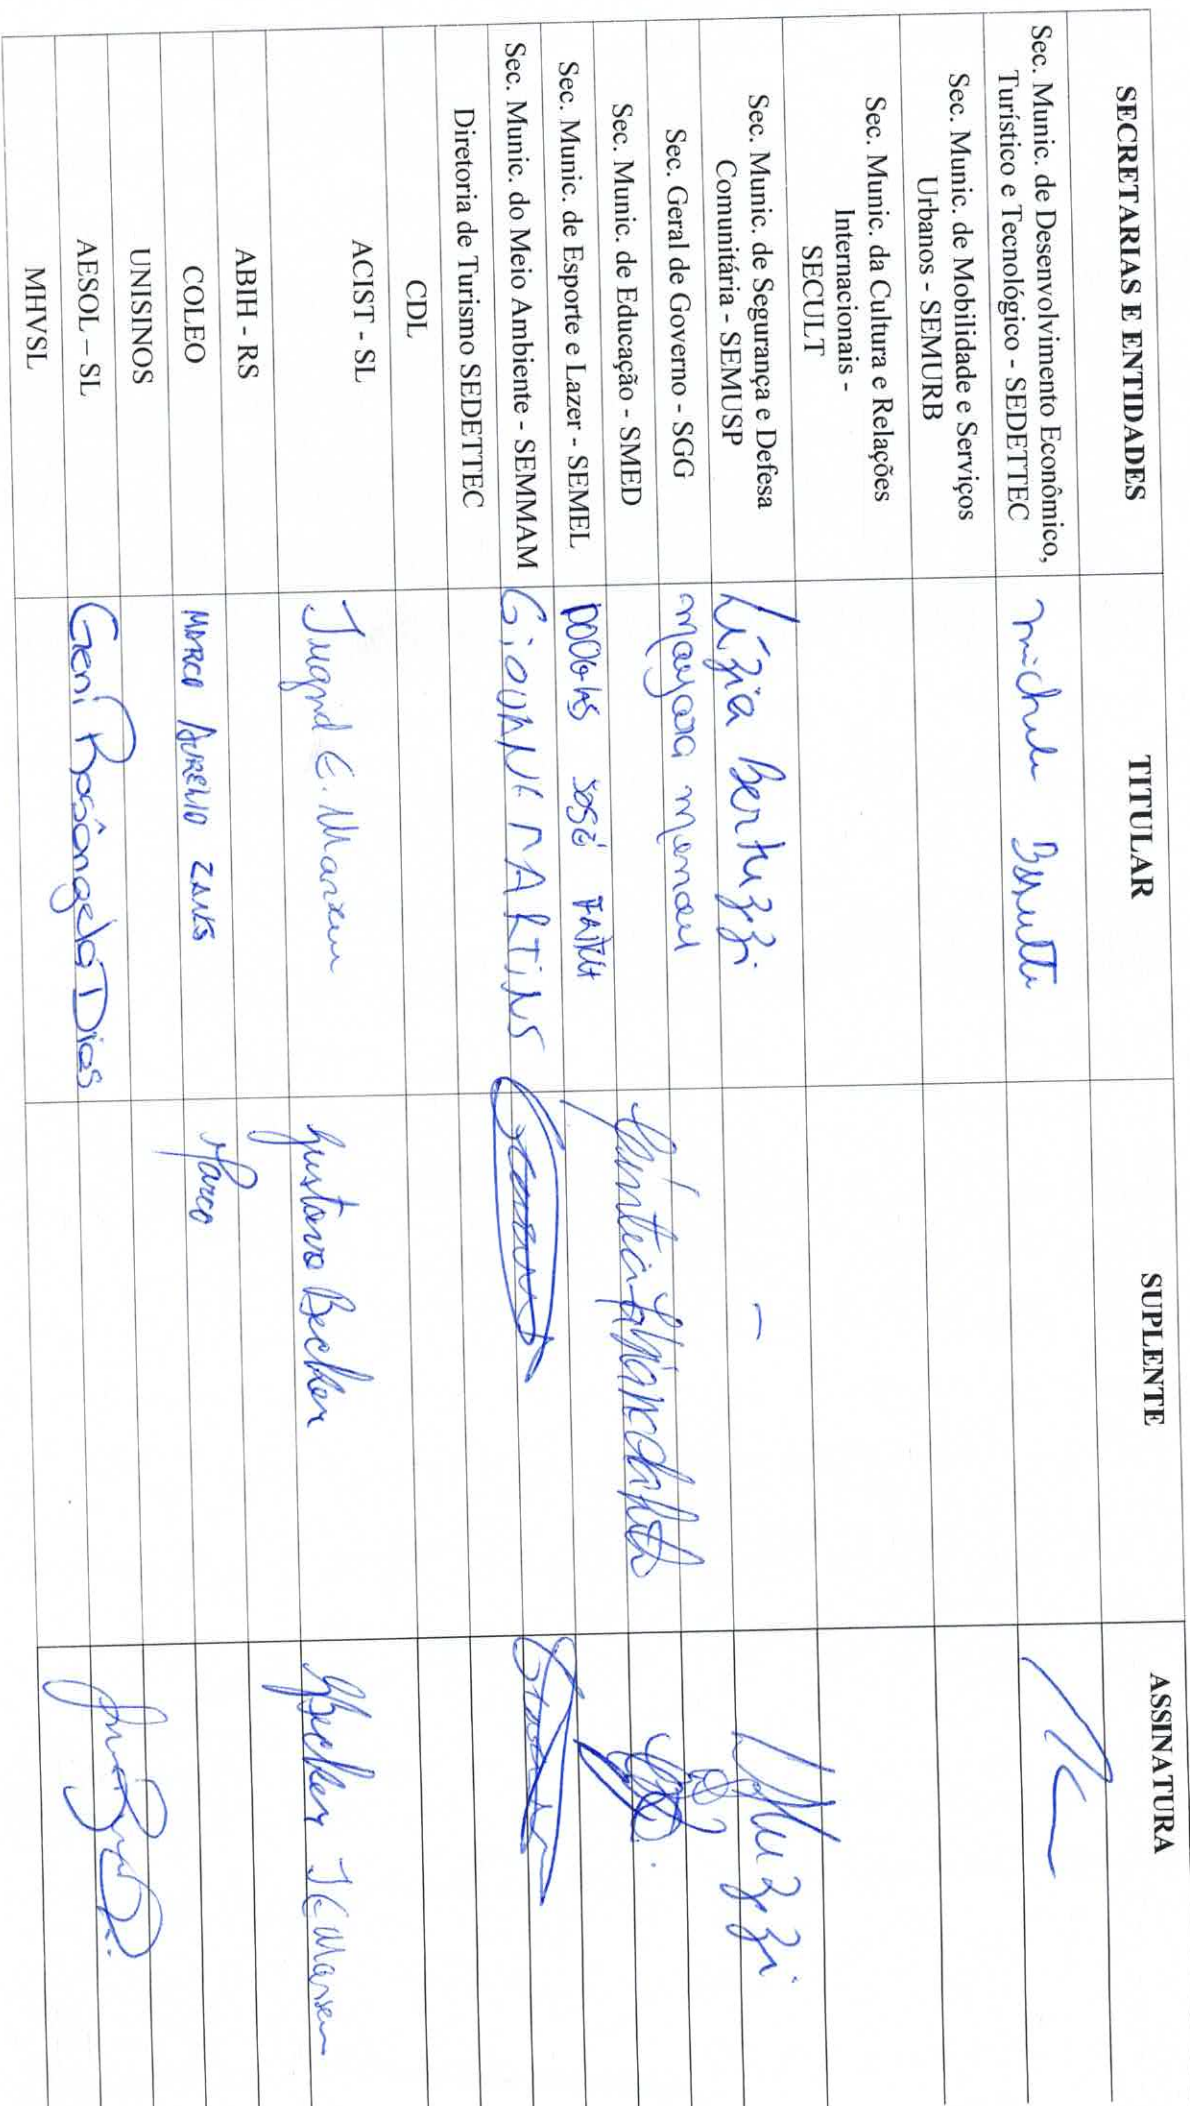 SECRETARIAS E ENTIDADES TITULAR SUPLENTE ASSINATURA
Sec. Munic. de Desenvolvimento Econômico,
Turístico e Tecnológico - SEDETTEC
Sec. Munic. de Mobilidade e Serviços
Urbanos - SEMURB
Sec. Munic. da Cultura e Relações
Internacionais -
SECULT
Sec. Munic. de Segurança e Defesa
Comunitária - SEMUSP Lízia Bertuzzi -
Sec. Geral de Governo - SGG Mayara
Sec. Munic. de Educação - SMED
Sec. Munic. de Esporte e Lazer - SEMEL José
Sec. Munic. do Meio Ambiente - SEMMAM MARTINS
Diretoria de Turismo SEDETTEC
CDL
ACIST - SL Gustavo Becker Becker
ABIH - RS
COLEO MARCO AURELIO Marco
UNISINOS
AESOL – SL Geni Rosângela Dias
MHVSL